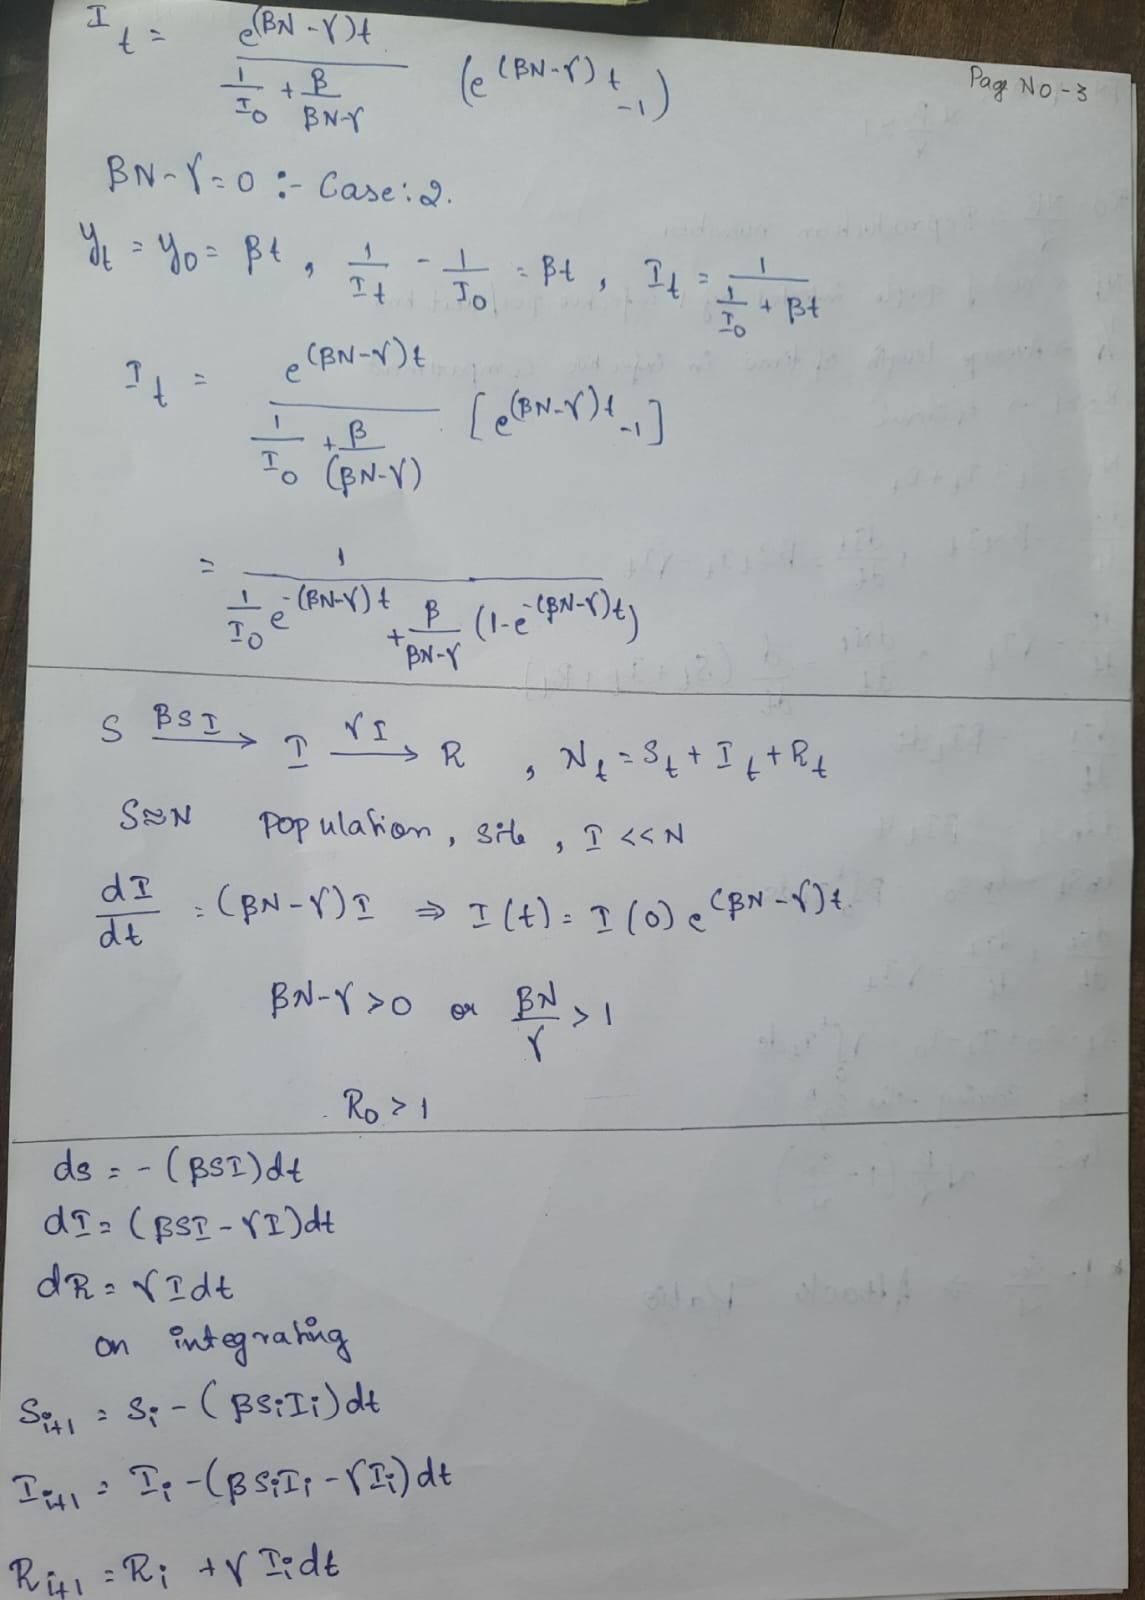 Page No-3
I_t = e^(βN-γ)t / 1/I_0 + β/βN-γ (e^(βN-γ)t -1)
βN-γ=0 :- Case:2.
y_t = y_0 = βt , 1/I_t - 1/I_0 = βt , I_t = 1 / 1/I_0 + βt
I_t = e^(βN-γ)t / 1/I_0 + β/(βN-γ) [e^(βN-γ)t -1]
= 1 / 1/I_0 e^-(βN-γ)t + β/βN-γ (1-e^-(βN-γ)t)
S βSI→ I γI→ R , N_t = S_t + I_t + R_t
S≈N Population, site, I << N
dI/dt = (βN-γ)I ⇒ I(t) = I(0) e^(βN-γ)t.
βN-γ>0 or βN/γ > 1
R_0 > 1
ds = -(βSI)dt
dI = (βSI-γI)dt
dR = γIdt
on integrating
S_i+1 = S_i - (βS_iI_i)dt
I_i+1 = I_i -(βS_iI_i -γI_i)dt
R_i+1 = R_i +γ I_idt